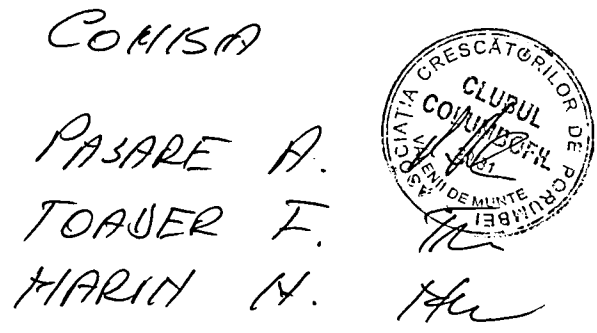 COMISIA
PASARE A.
TOADER F.
MARIN N.
ASOCIAȚIA CRESCĂTORILOR DE PORUMBEI
CLUBUL
COLUMBOFIL
VĂLENII DE MUNTE